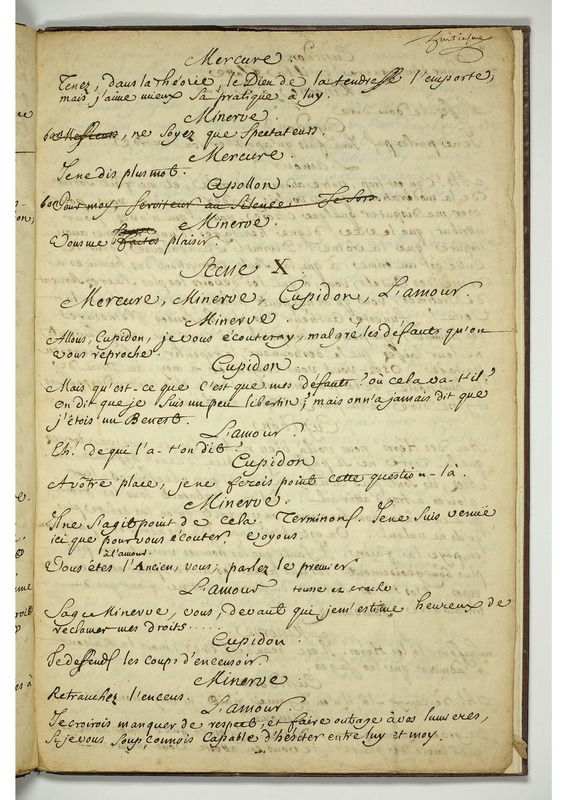 huitiesme
Mercure
Tenez, dans la théorie, le Dieu de la tendresse l'emporte,
mais j'aime mieux la pratique à luy.
Minerve.
Messieurs, ne soyez que spectateurs.
Mercure.
Je ne dis plus mot.
Apollon.
Pour moy, serviteur au Silence. Je sors.
Minerve.
Vous me faites plaisir.
Scene X.
Mercure, Minerve, Cupidon, L'amour.
Minerve
Allons, Cupidon, je vous écouteray, malgré les défauts qu'on
vous réproche.
Cupidon
Mais qu'est-ce que c'est que mes défauts? où cela va-t'il?
On dit que je suis un peu libertin; mais on n'a jamais dit que
j'étois un Benest.
L'amour.
Eh! de qui l'a-t'on dit?
Cupidon.
A vôtre place, je ne ferois point cette question-là.
Minerve.
Il ne s'agit point de cela. Terminons. Je ne suis venüe
ici que pour vous écouter. Voyons.
à l'amour.
Vous êtes l'Ancien, vous; parlez le premier
L'amour tousse et crache.
Sage Minerve, vous, devant qui je m'estime heureux de
réclamer mes droits.....
Cupidon.
Je deffends les coups d'encensoir.
Minerve.
Retranchez l'encens.
L'amour.
Je croirois manquer de respect, et faire outrage à vos lumieres,
si je vous soupçonnois capable d'hésiter entre luy et moy.